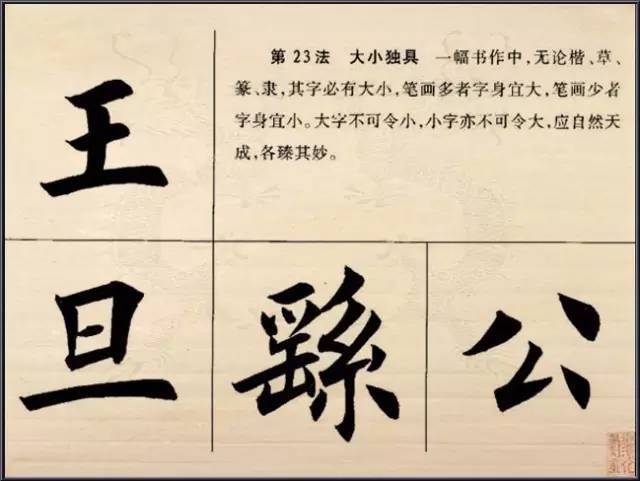 王
第23法 大小独具 一幅书作中,无论楷、草、
篆、隶,其字必有大小,笔画多者字身宜大,笔画少者
字身宜小。大字不可令小,小字亦不可令大,应自然天
成,各臻其妙。
旦
繇
公